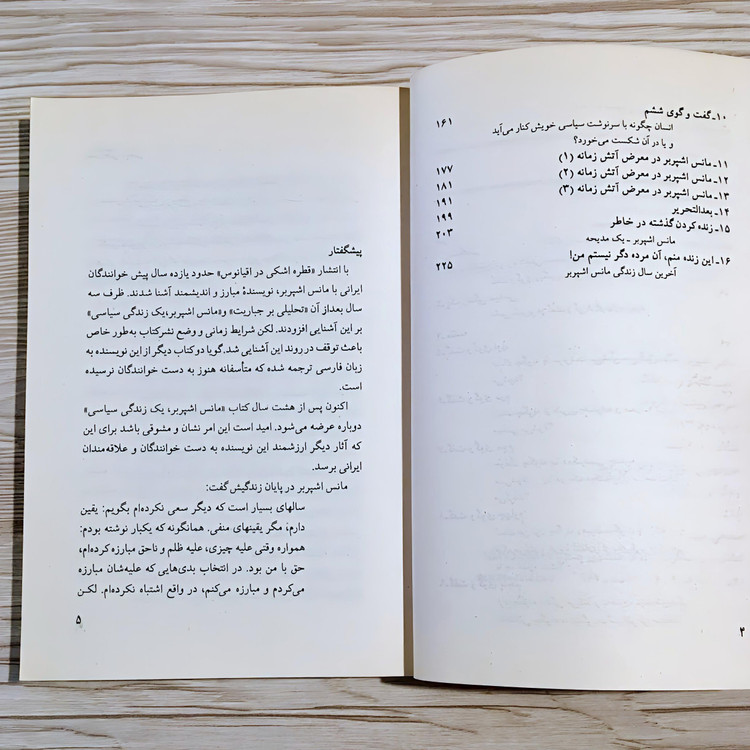 ۱۰ـ گفت و گوی ششم
انسان چگونه با سرنوشت سیاسی خویش کنار می‌آید
و یا در آن شکست می‌خورد؟ ۱۶۱
۱۱ـ مانس اشپربر در معرض آتش زمانه (۱) ۱۷۷
۱۲ـ مانس اشپربر در معرض آتش زمانه (۲) ۱۸۱
۱۳ـ مانس اشپربر در معرض آتش زمانه (۳) ۱۹۱
۱۴ـ بعدالتحریر ۱۹۹
۱۵ـ زنده کردن گذشته در خاطر ۲۰۳
مانس اشپربر ـ یک مدیحه
۱۶ـ این زنده منم، آن مرده دگر نیستم من! ۲۲۵
آخرین سال زندگی مانس اشپربر
۴
پیشگفتار
با انتشار «قطره اشکی در اقیانوس» حدود یازده سال پیش خوانندگان
ایرانی با مانس اشپربر، نویسندهٔ مبارز و اندیشمند آشنا شدند. ظرف سه
سال بعداز آن «تحلیلی بر جباریت» و«مانس اشپربر،یک زندگی سیاسی»
بر این آشنایی افزودند. لکن شرایط زمانی و وضع نشرکتاب به‌طور خاص
باعث توقف در روند این آشنایی شد.گویا دوکتاب دیگر از این نویسنده به
زبان فارسی ترجمه شده که متأسفانه هنوز به دست خوانندگان نرسیده
است.
اکنون پس از هشت سال کتاب «مانس اشپربر، یک زندگی سیاسی»
دوباره عرضه می‌شود. امید است این امر نشان و مشوقی باشد برای این
که آثار دیگر ارزشمند این نویسنده به دست خوانندگان و علاقه‌مندان
ایرانی برسد.
مانس اشپربر در پایان زندگیش گفت:
سالهای بسیار است که دیگر سعی نکرده‌ام بگویم: یقین
دارم، مگر یقینهای منفی. همانگونه که یکبار نوشته بودم:
همواره وقتی علیه چیزی، علیه ظلم و ناحق مبارزه کرده‌ام،
حق با من بود. در انتخاب بدی‌هایی که علیه‌شان مبارزه
می‌کردم و مبارزه می‌کنم، در واقع اشتباه نکرده‌ام. لکن
۵